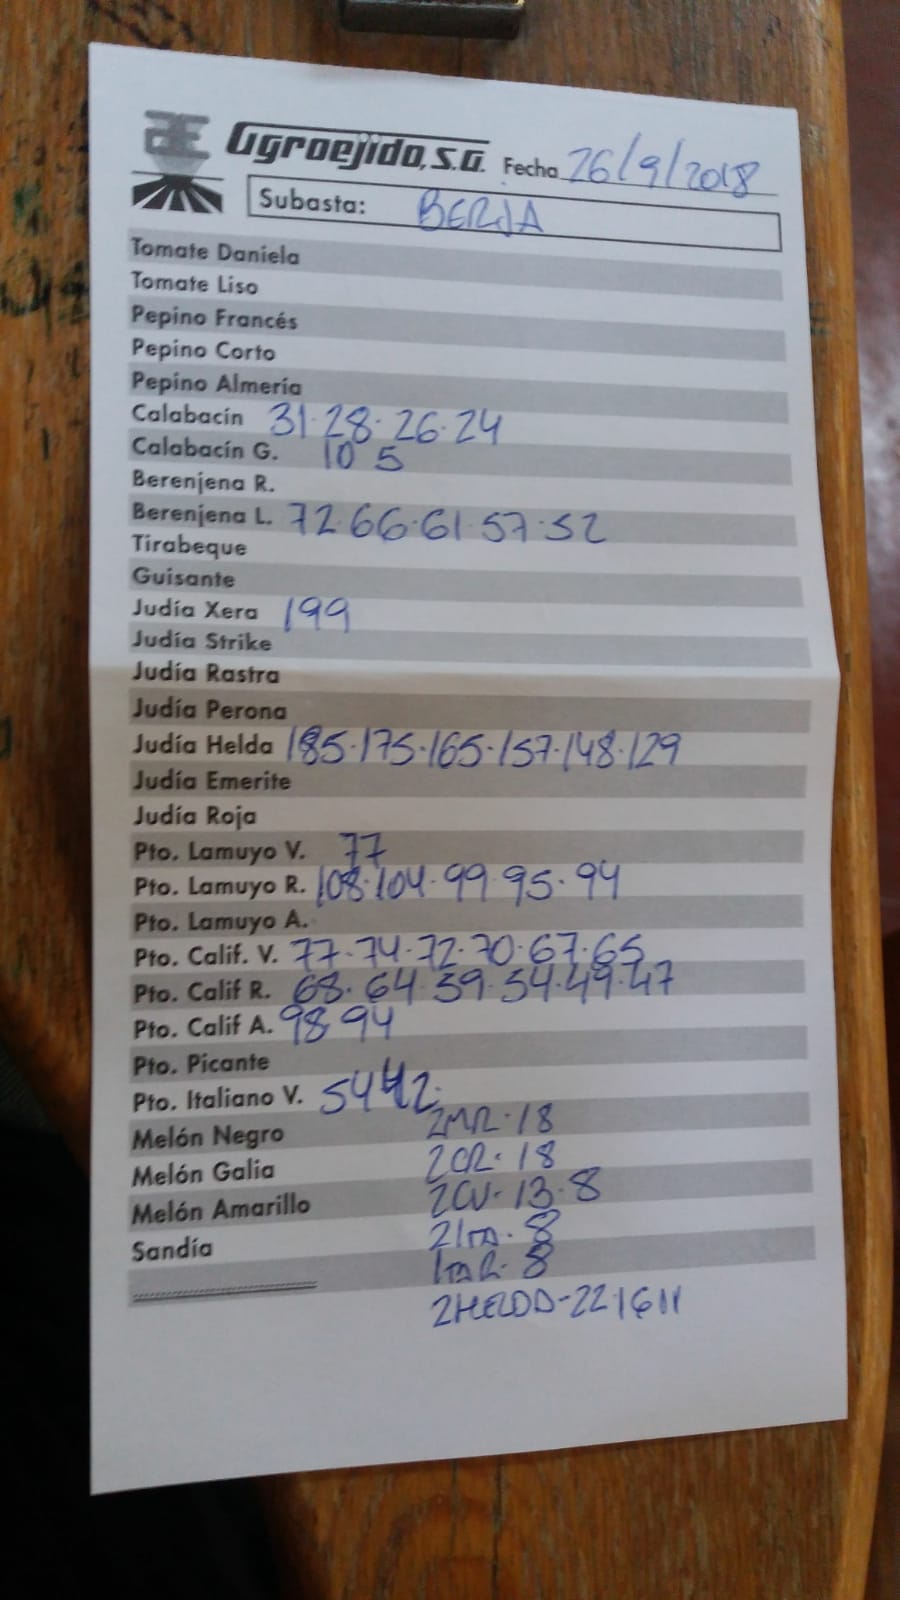 Agroejido, S.A. Fecha 26/9/2018
Subasta: BERJA
Tomate Daniela
Tomate Liso
Pepino Francés
Pepino Corto
Pepino Almería
Calabacín 31·28·26·24
Calabacín G. 10 5
Berenjena R.
Berenjena L. 72·66·61·57·52
Tirabeque
Guisante
Judía Xera 199
Judía Strike
Judía Rastra
Judía Perona
Judía Helda 185·175·165·157·148·129
Judía Emerite
Judía Roja
Pto. Lamuyo V. 77
Pto. Lamuyo R. 108·104·99·95·94
Pto. Lamuyo A.
Pto. Calif. V. 77·74·72·70·67·65
Pto. Calif R. 68·64·59·54·49·47
Pto. Calif A. 98·94
Pto. Picante
Pto. Italiano V. 54 42
Melón Negro 2MR·18
Melón Galia 2CR·18
Melón Amarillo 2CV·13·8
Sandía 8
8
22·16·11